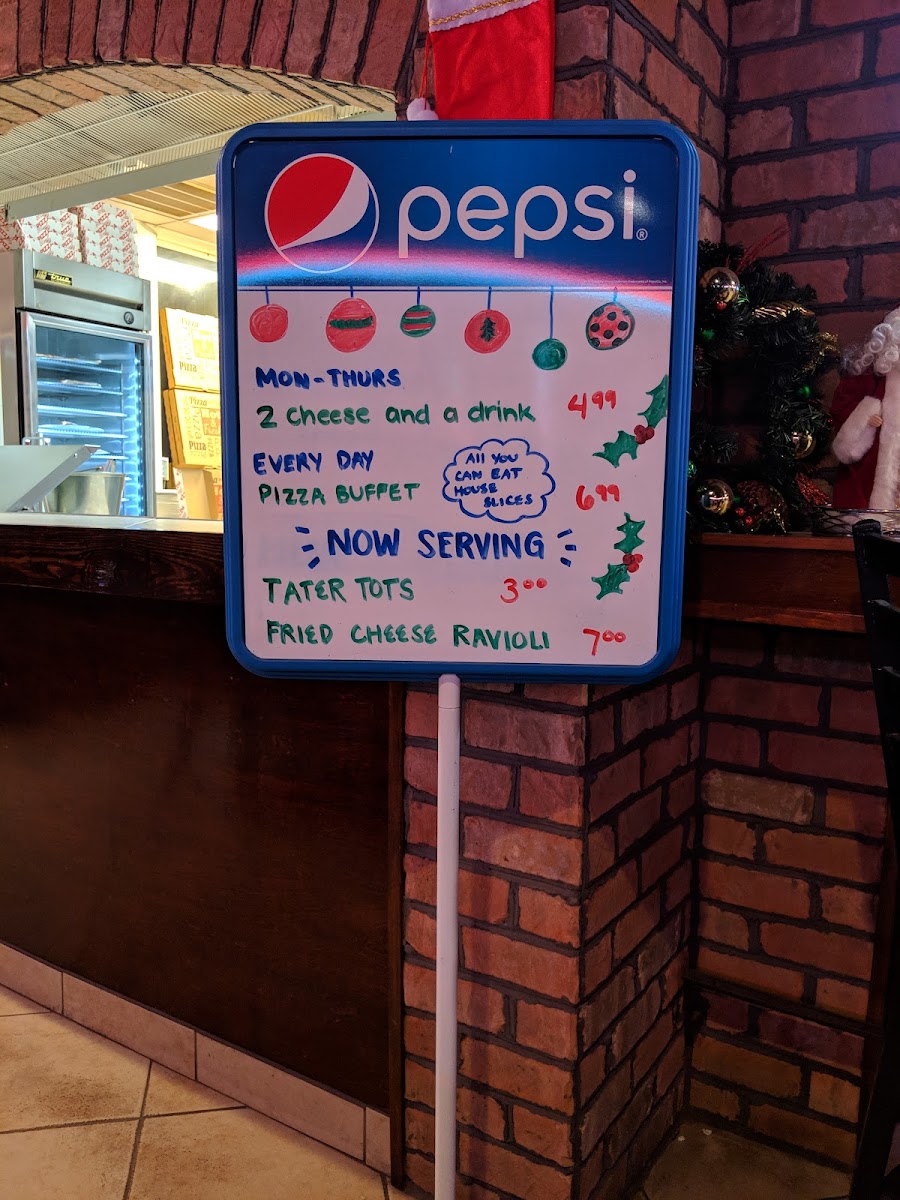 pepsi®
MON-THURS
2 cheese and a drink 4.99
EVERY DAY
PIZZA BUFFET
All YOU
CAN EAT
HOUSE
SLICES
6.99
NOW SERVING
TATER TOTS 3.00
FRIED CHEESE RAVIOLI 7.00
true
Pizza
Pizza
Pizza